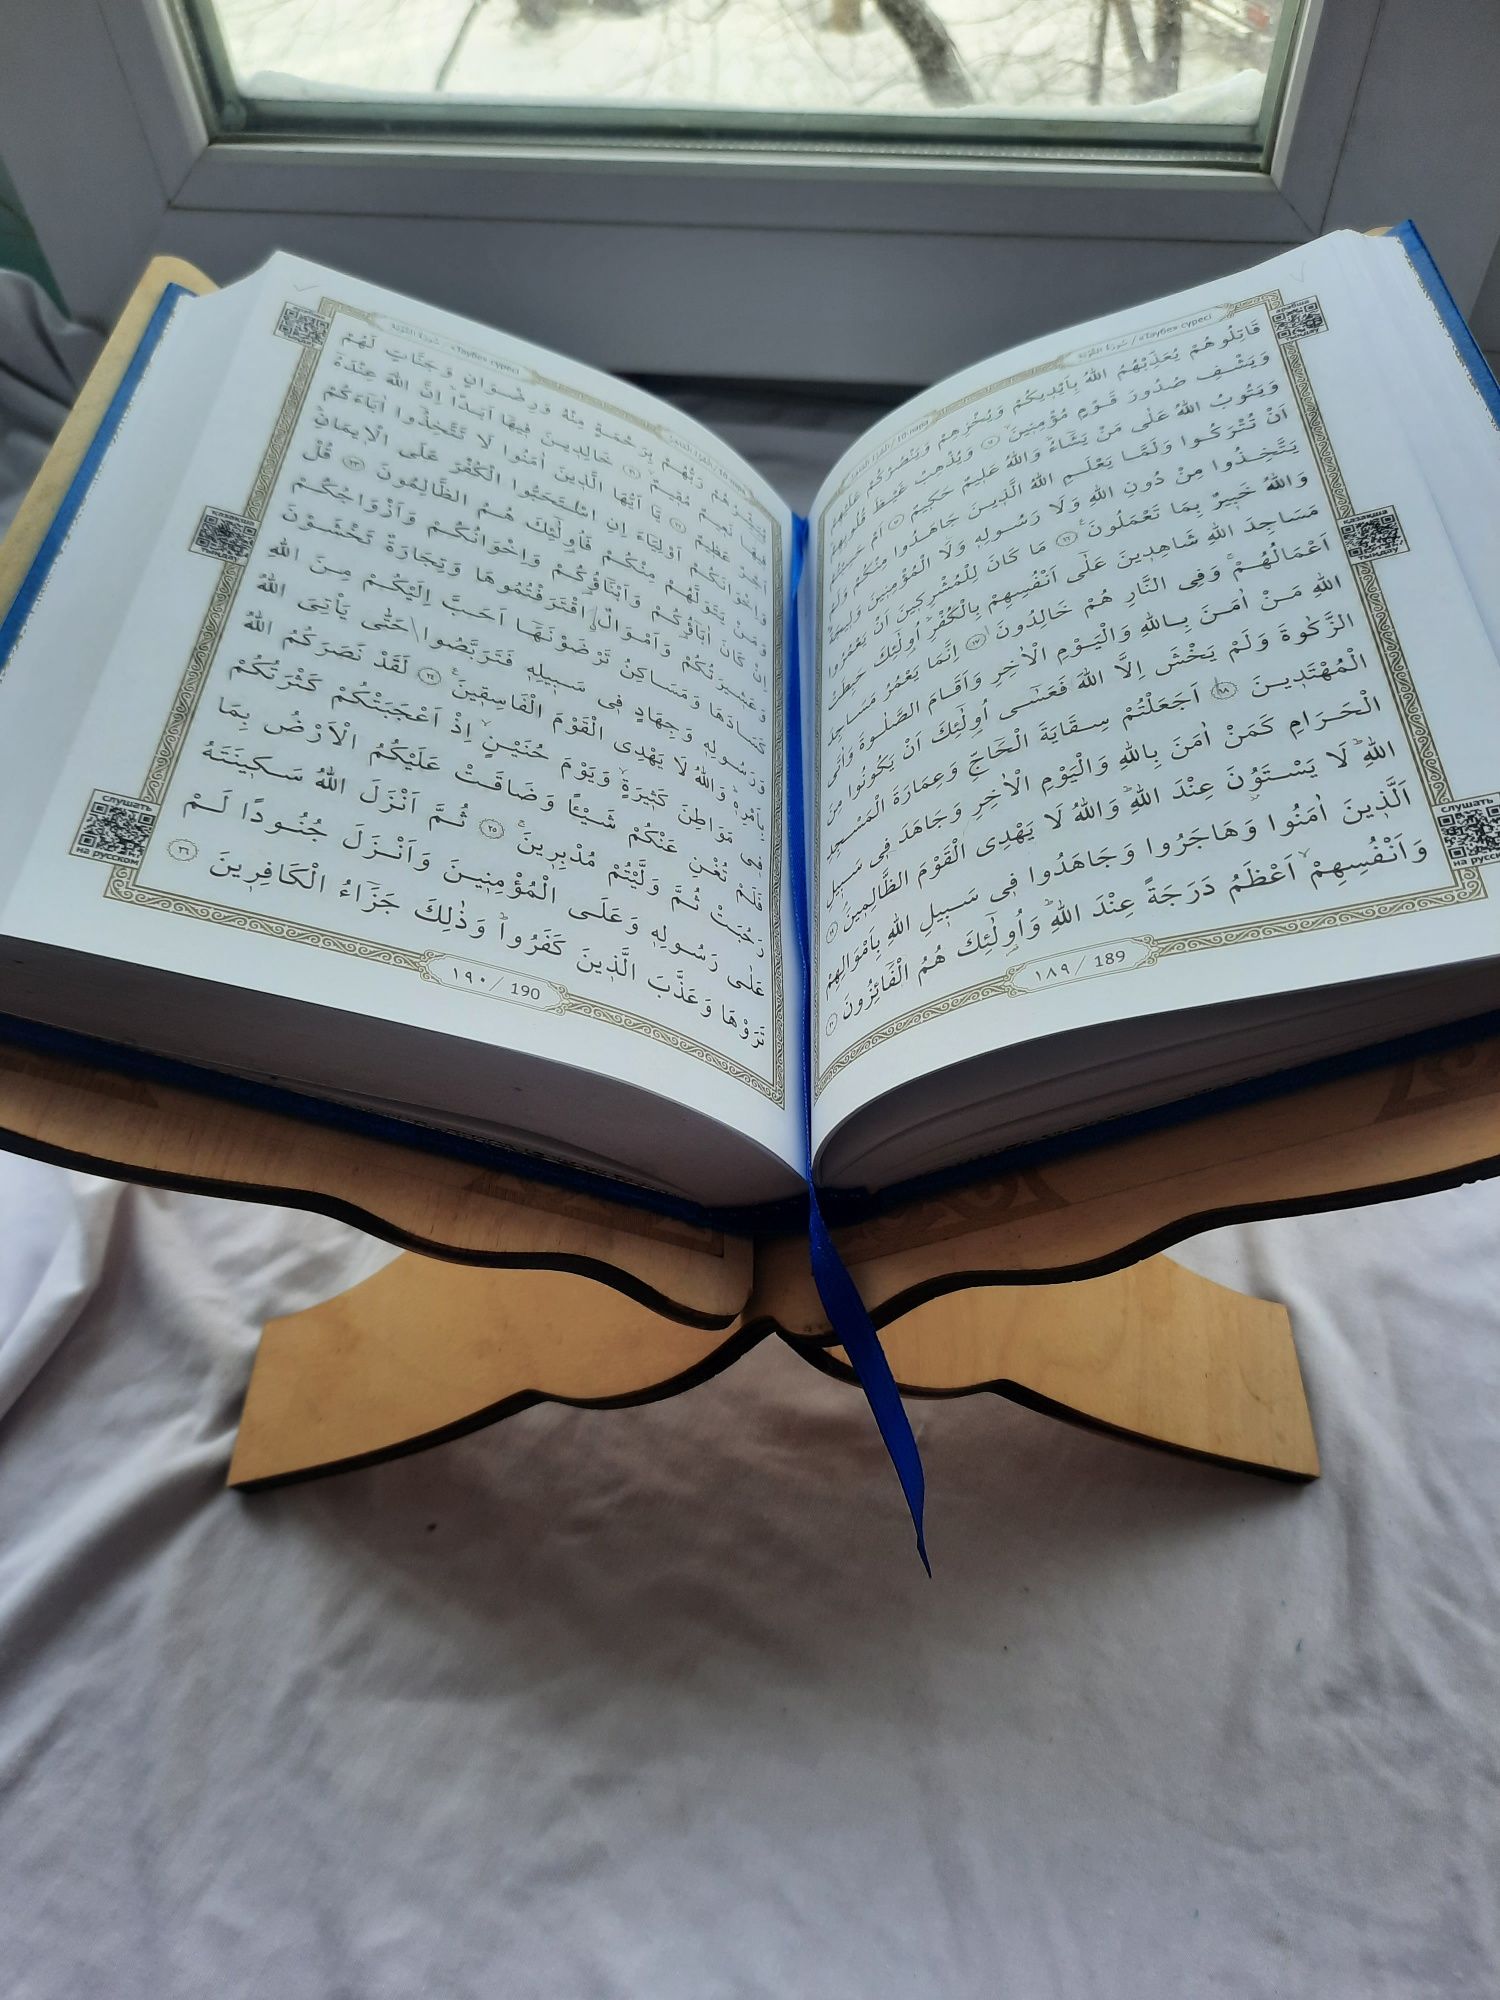 арабша
тыңдау
سُورَةُ التَّوْبَةِ / «Тәубе» сүресі
10 пара
قَاتِلُوهُمْ يُعَذِّبْهُمُ اللّٰهُ بِاَيْدٖيكُمْ وَيُخْزِهِمْ وَيَنْصُرْكُمْ عَلَيْهِمْ
وَيَشْفِ صُدُورَ قَوْمٍ مُؤْمِنٖينَ ﴿١٤﴾ وَيُذْهِبْ غَيْظَ قُلُوبِهِمْ
وَيَتُوبُ اللّٰهُ عَلٰى مَنْ يَشَٓاءُ وَاللّٰهُ عَلٖيمٌ حَكٖيمٌ ﴿١٥﴾ اَمْ حَسِبْتُمْ
اَنْ تُتْرَكُوا وَلَمَّا يَعْلَمِ اللّٰهُ الَّذٖينَ جَاهَدُوا مِنْكُمْ وَلَمْ
يَتَّخِذُوا مِنْ دُونِ اللّٰهِ وَلَا رَسُولِهٖ وَلَا الْمُؤْمِنٖينَ وَلٖيجَةً
وَاللّٰهُ خَبٖيرٌ بِمَا تَعْمَلُونَ ﴿١٦﴾ مَا كَانَ لِلْمُشْرِكٖينَ اَنْ يَعْمُرُوا
مَسَاجِدَ اللّٰهِ شَاهِدٖينَ عَلٰٓى اَنْفُسِهِمْ بِالْكُفْرِ اُولٰٓئِكَ حَبِطَتْ
اَعْمَالُهُمْ وَفِى النَّارِ هُمْ خَالِدُونَ ﴿١٧﴾ اِنَّمَا يَعْمُرُ مَسَاجِدَ
اللّٰهِ مَنْ اٰمَنَ بِاللّٰهِ وَالْيَوْمِ الْاٰخِرِ وَاَقَامَ الصَّلٰوةَ وَاٰتَى
الزَّكٰوةَ وَلَمْ يَخْشَ اِلَّا اللّٰهَ فَعَسٰٓى اُولٰٓئِكَ اَنْ يَكُونُوا مِنَ
الْمُهْتَدٖينَ ﴿١٨﴾ اَجَعَلْتُمْ سِقَايَةَ الْحَٓاجِّ وَعِمَارَةَ الْمَسْجِدِ
الْحَرَامِ كَمَنْ اٰمَنَ بِاللّٰهِ وَالْيَوْمِ الْاٰخِرِ وَجَاهَدَ فٖى سَبٖيلِ
اللّٰهِ لَا يَسْتَوُ۫نَ عِنْدَ اللّٰهِ وَاللّٰهُ لَا يَهْدِى الْقَوْمَ الظَّالِمٖينَ ﴿١٩﴾
اَلَّذٖينَ اٰمَنُوا وَهَاجَرُوا وَجَاهَدُوا فٖى سَبٖيلِ اللّٰهِ بِاَمْوَالِهِمْ
وَاَنْفُسِهِمْ اَعْظَمُ دَرَجَةً عِنْدَ اللّٰهِ وَاُولٰٓئِكَ هُمُ الْفَٓائِزُونَ ﴿٢٠﴾
қазақша
тыңдау
слушать
на русском
١٨٩ / 189
سُورَةُ التَّوْبَةِ / «Тәубе» сүресі
10 пара
يُبَشِّرُهُمْ رَبُّهُمْ بِرَحْمَةٍ مِنْهُ وَرِضْوَانٍ وَجَنَّاتٍ لَهُمْ
فٖيهَا نَعٖيمٌ مُقٖيمٌ ﴿٢١﴾ خَالِدٖينَ فٖيهَٓا اَبَدًا اِنَّ اللّٰهَ عِنْدَهُٓ
اَجْرٌ عَظٖيمٌ ﴿٢٢﴾ يَٓا اَيُّهَا الَّذٖينَ اٰمَنُوا لَا تَتَّخِذُٓوا اٰبَٓاءَكُمْ
وَاِخْوَانَكُمْ اَوْلِيَٓاءَ اِنِ اسْتَحَبُّوا الْكُفْرَ عَلَى الْاٖيمَانِ
وَمَنْ يَتَوَلَّهُمْ مِنْكُمْ فَاُولٰٓئِكَ هُمُ الظَّالِمُونَ ﴿٢٣﴾ قُلْ
اِنْ كَانَ اٰبَٓاؤُ۬كُمْ وَاَبْنَٓاؤُ۬كُمْ وَاِخْوَانُكُمْ وَاَزْوَاجُكُمْ
وَعَشٖيرَتُكُمْ وَاَمْوَالٌ اقْتَرَفْتُمُوهَا وَتِجَارَةٌ تَخْشَوْنَ
كَسَادَهَا وَمَسَاكِنُ تَرْضَوْنَهَٓا اَحَبَّ اِلَيْكُمْ مِنَ اللّٰهِ
وَرَسُولِهٖ وَجِهَادٍ فٖى سَبٖيلِهٖ فَتَرَبَّصُوا حَتّٰى يَاْتِىَ اللّٰهُ
بِاَمْرِهٖ وَاللّٰهُ لَا يَهْدِى الْقَوْمَ الْفَاسِقٖينَ ﴿٢٤﴾ لَقَدْ نَصَرَكُمُ اللّٰهُ
فٖى مَوَاطِنَ كَثٖيرَةٍ وَيَوْمَ حُنَيْنٍ اِذْ اَعْجَبَتْكُمْ كَثْرَتُكُمْ
فَلَمْ تُغْنِ عَنْكُمْ شَيْـًٔا وَضَاقَتْ عَلَيْكُمُ الْاَرْضُ بِمَا
رَحُبَتْ ثُمَّ وَلَّيْتُمْ مُدْبِرٖينَ ﴿٢٥﴾ ثُمَّ اَنْزَلَ اللّٰهُ سَكٖينَتَهُ
عَلٰى رَسُولِهٖ وَعَلَى الْمُؤْمِنٖينَ وَاَنْزَلَ جُنُودًا لَمْ
تَرَوْهَا وَعَذَّبَ الَّذٖينَ كَفَرُوا وَذٰلِكَ جَزَٓاءُ الْكَافِرٖينَ ﴿٢٦﴾
қазақша
тыңдау
слушать
на русском
١٩٠ / 190